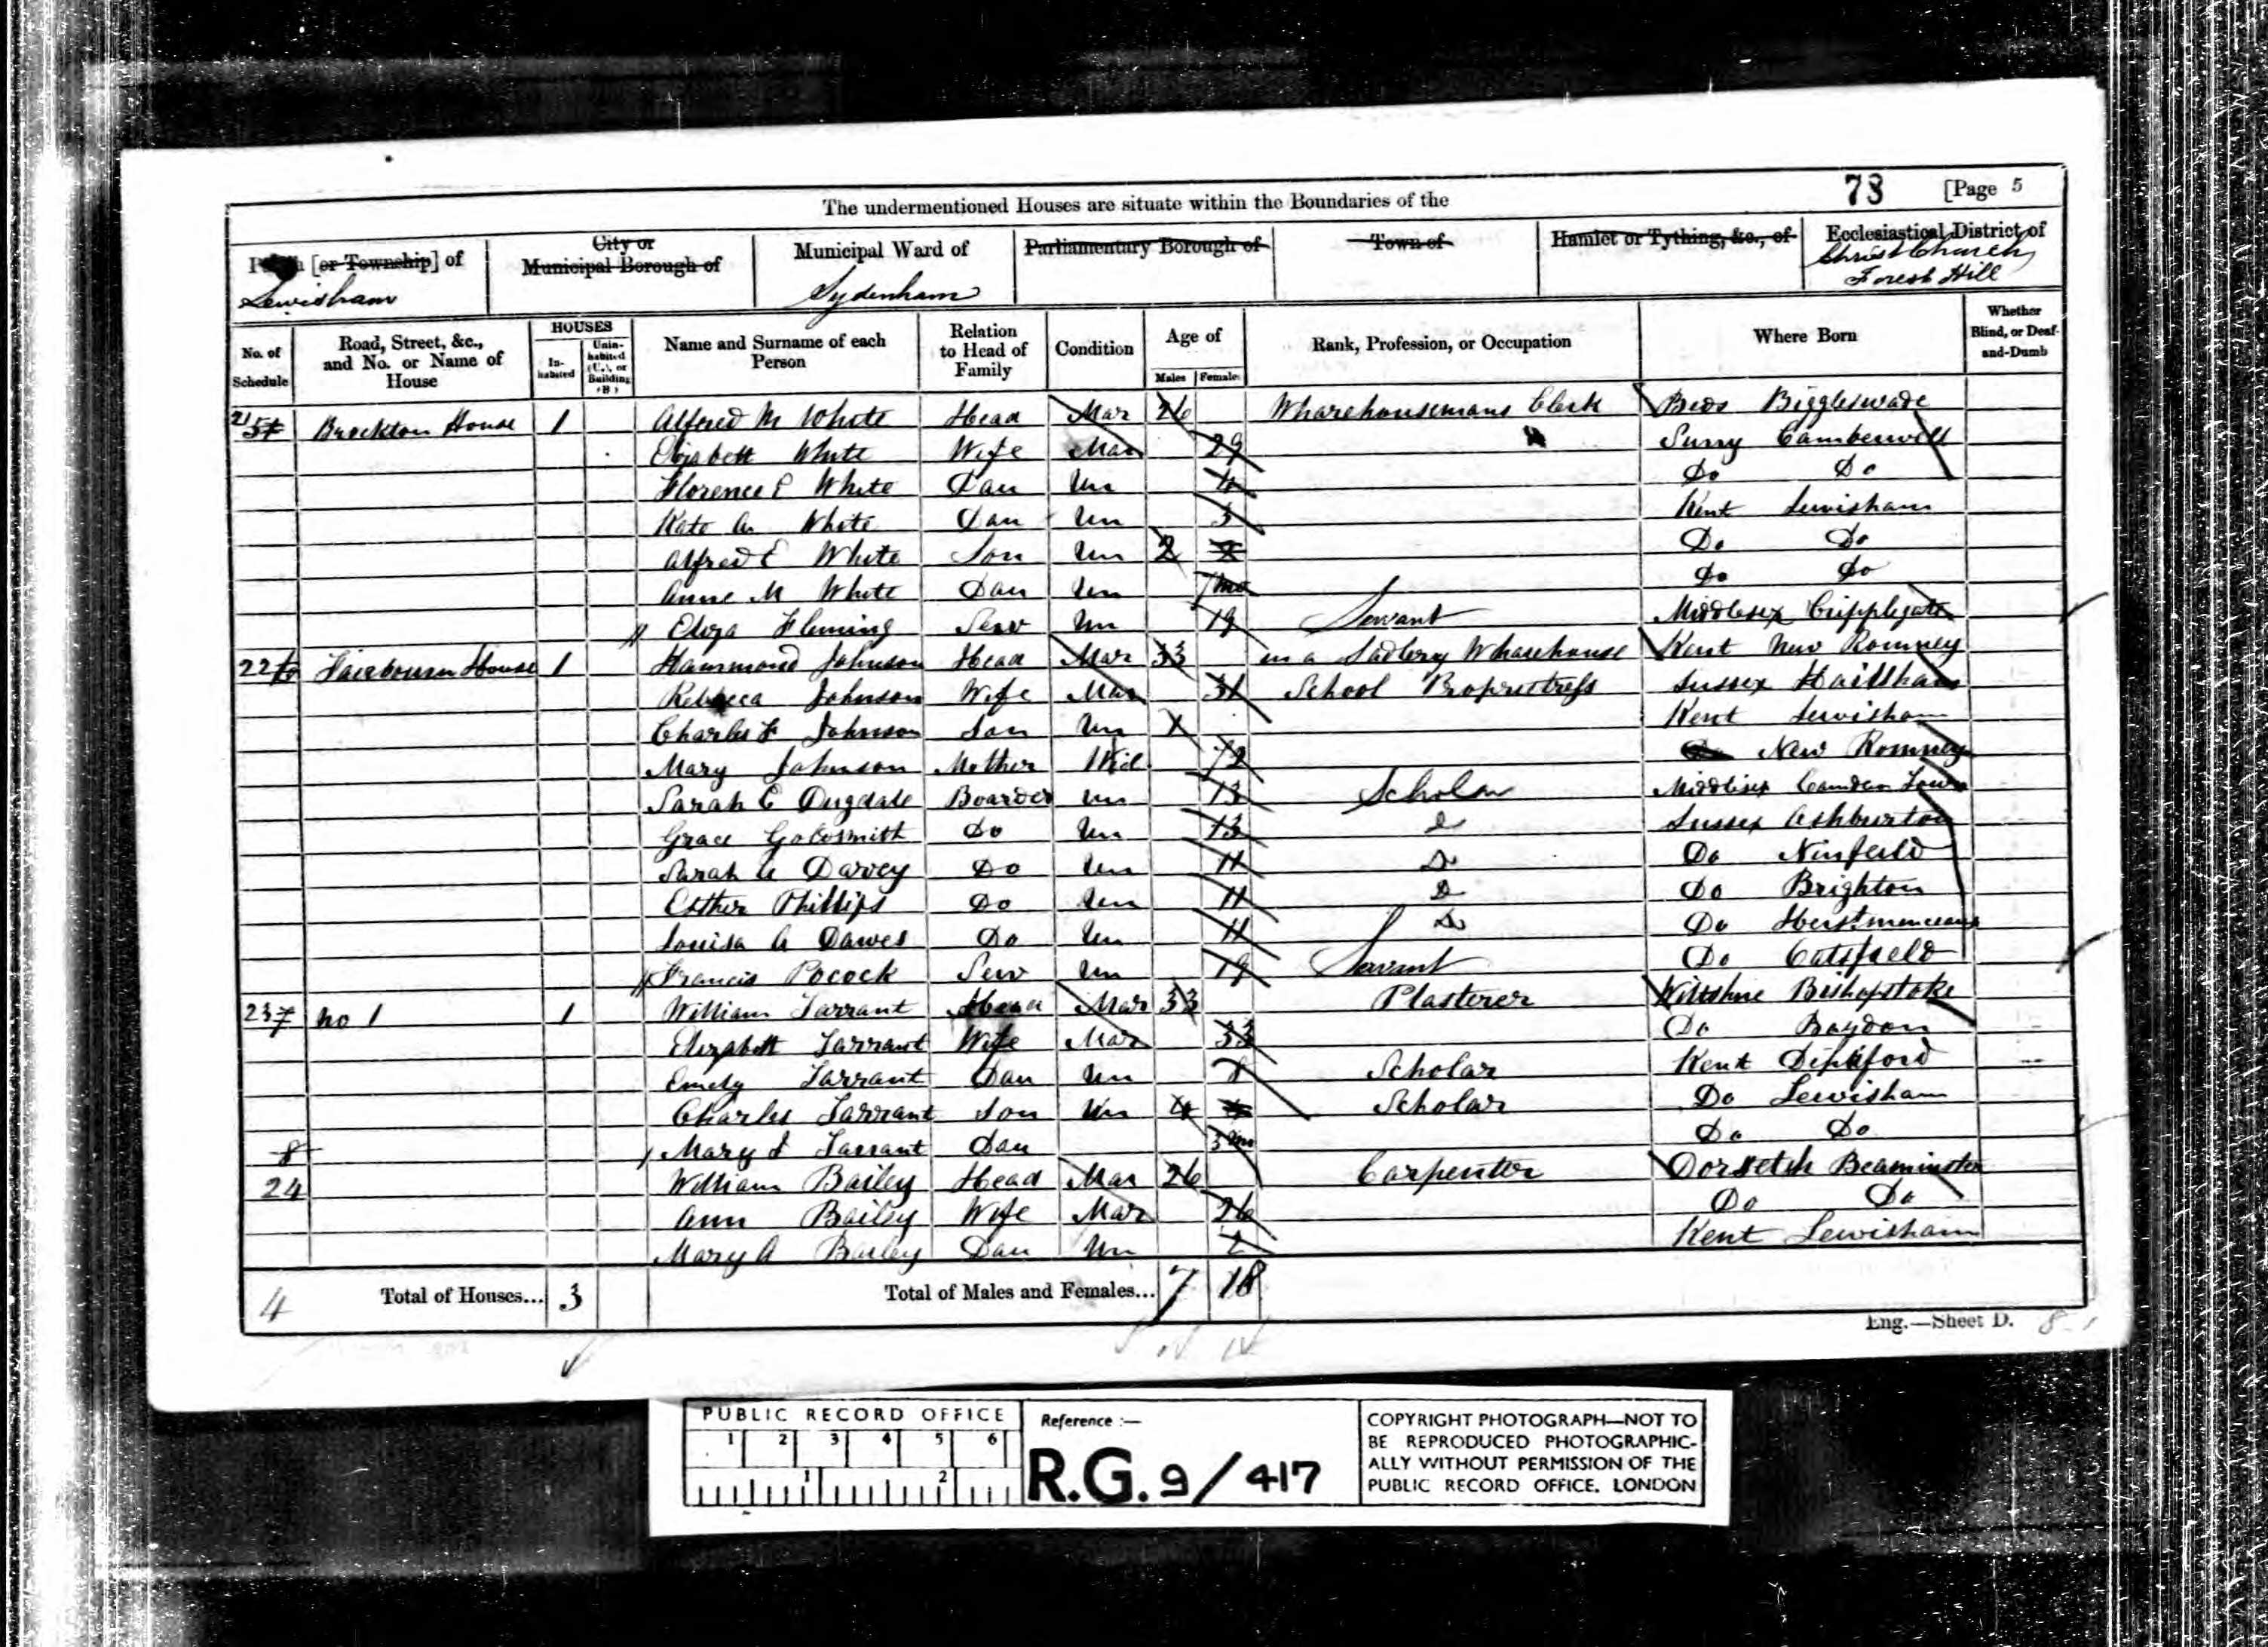 The undermentioned Houses are situate within the Boundaries of the 73 [Page 5
[or Township] of City or Municipal Borough of Municipal Ward of Parliamentary Borough of Town of Hamlet or Tything, &c., of Ecclesiastical District of
Lewisham Sydenham Christ Church Forest Hill
No. of Schedule Road, Street, &c., and No. or Name of House HOUSES In-habited Unin-habited (U.), or Building (B.) Name and Surname of each Person Relation to Head of Family Condition Age of Males Females Rank, Profession, or Occupation Where Born Whether Blind, or Deaf-and-Dumb
21 Brockton House 1 Alfred M White Head Mar 26 Wharehousemans Clerk Beds Biggleswade
Elizabeth White Wife Mar 29 Surry Camberwell
Florence E White Dau Un 4 Do Do
Kate A White Dau Un 3 Kent Lewisham
Alfred E White Son Un 2 Do Do
Anne M White Dau Un Do Do
Eliza Fleming Serv Un 19 Servant Middlesex Cripplegate
22 Fairbourn House 1 Hammond Johnson Head Mar 33 in a Sadlery Wharehouse Kent New Romney
Rebecca Johnson Wife Mar 31 School Proprietress Sussex Hailsham
Charles F Johnson Son Un Kent Lewisham
Mary Johnson Mother Wid 72 New Romney
Sarah E Dugdale Boarder Un 13 Scholar Middlesex Camden Town
Grace Goldsmith Do Un 13 D Sussex Ashburton
Sarah A Darvey Do Un 11 Do Do Ninfeild
Esther Phillips Do Un 11 D Do Brighton
Louisa A Dawes Do Un 11 Do Do
Francis Pocock Serv Un 19 Servant Do Catsfield
23 7 No 1 1 William Tarrant Head Mar 33 Plasterer Wiltshire Bishopstoke
Elizabeth Tarrant Wife Mar 33 Do Baydon
Emely Tarrant Dau Un 8 Scholar Kent Deptford
Charles Tarrant Son Un 4 Scholar Do Lewisham
8 Mary J Tarrant Dau 3 mo Do Do
24 William Bailey Head Mar 26 Carpenter Dorsetsh Beaminster
Ann Bailey Wife Mar 26 Do Do
Mary A Bailey Dau Un 2 Kent Lewisham
4 Total of Houses... 3 Total of Males and Females... 7 18
Eng.—Sheet D.
PUBLIC RECORD OFFICE
1 2 3 4 5 6
1 2
Reference :—
R.G. 9/417
COPYRIGHT PHOTOGRAPH—NOT TO
BE REPRODUCED PHOTOGRAPHIC-
ALLY WITHOUT PERMISSION OF THE
PUBLIC RECORD OFFICE, LONDON